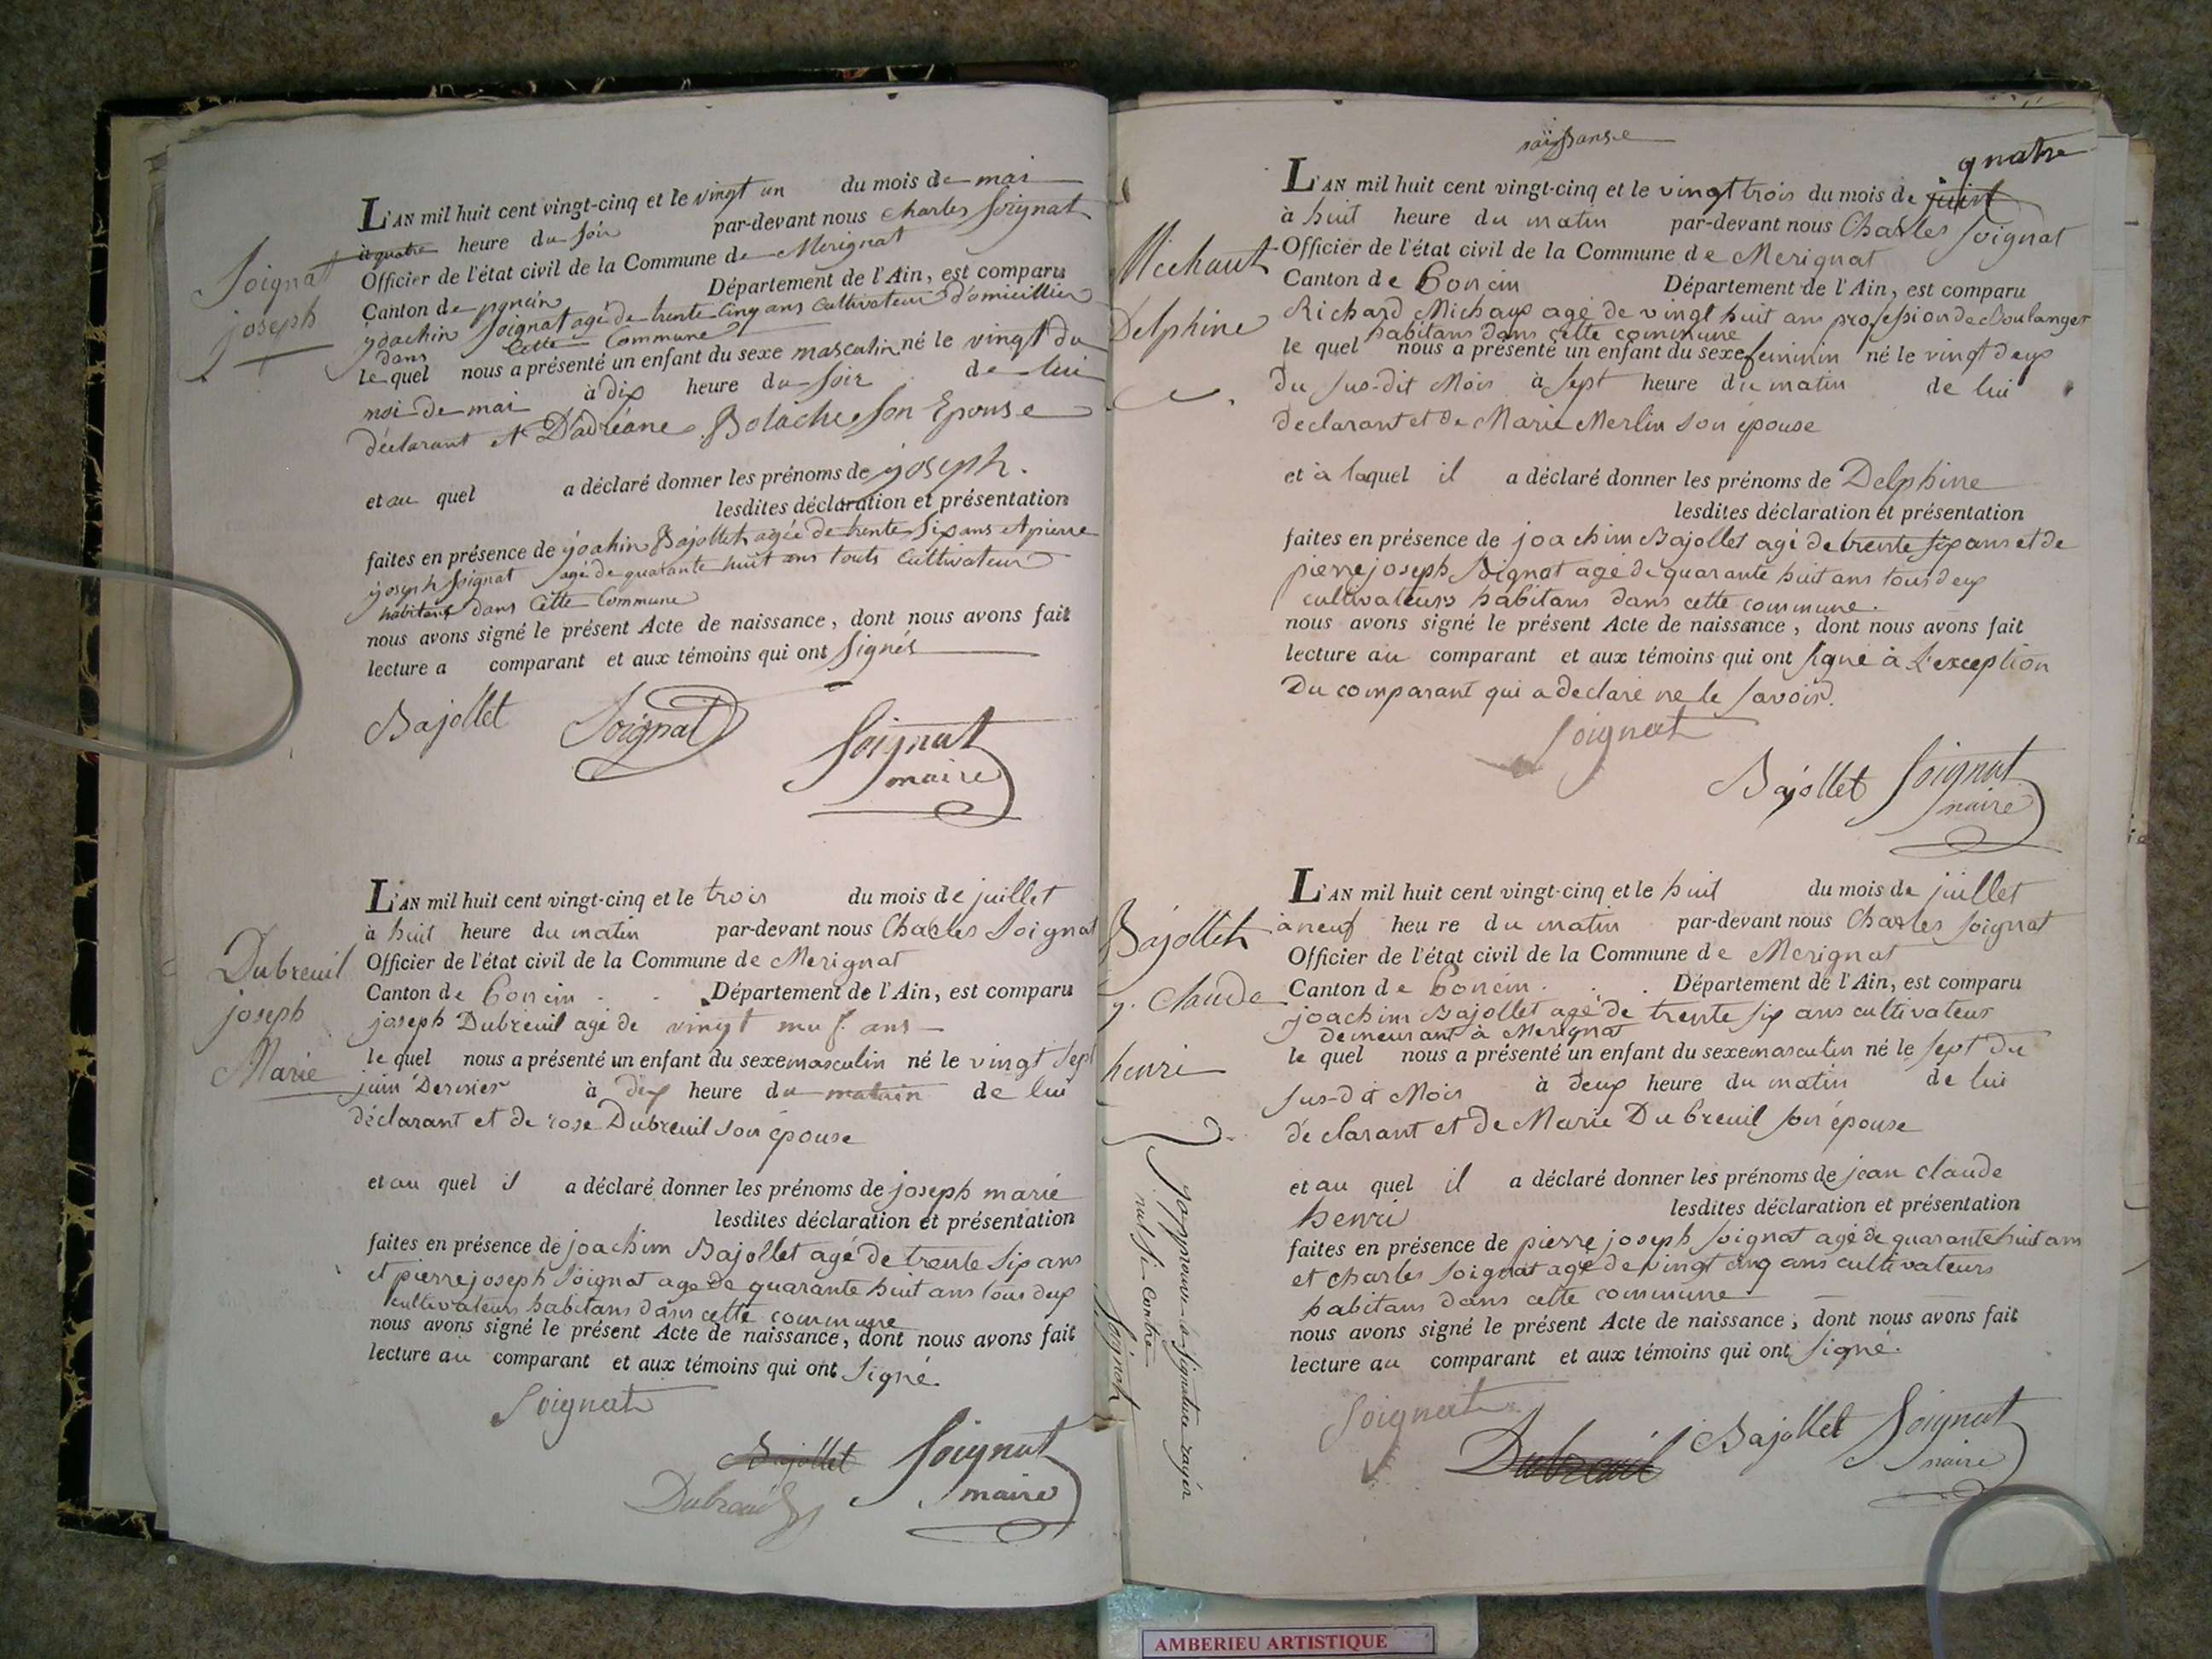 L'AN mil huit cent vingt-cinq et le vingt un du mois de mai
à quatre heure du soir par-devant nous charles Soignat
Officier de l'état civil de la Commune de Merignat
Canton de poncin Département de l'Ain, est comparu
joachin Soignat agé de trente cinq ans cultivateur domicillier
dans cette Commune
le quel nous a présenté un enfant du sexe masculin né le vingt du
moi de mai à dix heure du soir de lui
déclarant et D'adréane Bolache son Epouse
Soignat
joseph
et au quel a déclaré donner les prénoms de joseph.
lesdites déclaration et présentation
faites en présence de joahin Bajollet agée de trente six ans et pierre
joseph Soignat agé de quarante huit ans touts cultivateur
habitans dans cette Commune
nous avons signé le présent Acte de naissance, dont nous avons fait
lecture a comparant et aux témoins qui ont signés
Bajollet Soignat Soignat
maire
L'AN mil huit cent vingt-cinq et le trois du mois de juillet
à huit heure du matin par-devant nous Charles Soignat
Officier de l'état civil de la Commune de Merignat
Canton de Poncin Département de l'Ain, est comparu
joseph Dubreuil agé de vingt neuf ans
le quel nous a présenté un enfant du sexe masculin né le vingt sept
juin Dernier à dix heure du matain de lui
déclarant et de rose Dubreuil son épouse
Dubreuil
joseph
Marie
et au quel il a déclaré donner les prénoms de joseph marie
lesdites déclaration et présentation
faites en présence de joachim Bajollet agé de trente six ans
et pierre joseph Soignat age de quarante huit ans tous deux
cultivateurs habitans dans cette commune
nous avons signé le présent Acte de naissance, dont nous avons fait
lecture au comparant et aux témoins qui ont signé.
Soignat
Bajollet Soignat
Dubreuil maire
naissanse
quatre
L'AN mil huit cent vingt-cinq et le vingt trois du mois de juin
à huit heure du matin par-devant nous Charles Soignat
Officier de l'état civil de la Commune de Merignat
Canton de Poncin Département de l'Ain, est comparu
Richard Michaux agé de vingt huit ans profession de Boulanger
habitans dans cette commune
le quel nous a présenté un enfant du sexe feminin né le vingt deux
Du sus-dit Mois à sept heure du matin de lui
declarant et de Marie Merlin son épouse
Michaut
Delphine
et à laquel il a déclaré donner les prénoms de Delphine
lesdites déclaration et présentation
faites en présence de joachim Bajollet agé de trente six ans et de
pierre joseph Soignat agé de quarante huit ans tous deux
cultivateurs habitans dans cette commune.
nous avons signé le présent Acte de naissance, dont nous avons fait
lecture au comparant et aux témoins qui ont signé à L'exception
Du comparant qui a declaré ne le savoir.
Soignat
Bajollet Soignat
maire
L'AN mil huit cent vingt-cinq et le huit du mois de juillet
à neuf heure du matin par-devant nous Charles Soignat
Officier de l'état civil de la Commune de Merignat
Canton de Poncin Département de l'Ain, est comparu
joachim Bajollet agé de trente six ans cultivateur
demeurant à Merignat
le quel nous a présenté un enfant du sexe masculin né le sept du
sus-dit Mois à deux heure du matin de lui
déclarant et de Marie Dubreuil son épouse
Bajollet
j. Claude
henri
et au quel il a déclaré donner les prénoms de jean claude
henri lesdites déclaration et présentation
faites en présence de pierre joseph Soignat agé de quarante huit ans
et charles Soignat agé de vingt cinq ans cultivateurs
habitans dans cette commune
nous avons signé le présent Acte de naissance, dont nous avons fait
lecture au comparant et aux témoins qui ont signé.
Soignat
Dubreuil Bajollet Soignat
maire
J'approuve la signature rayér
nul si contre
Soignat
AMBERIEU ARTISTIQUE